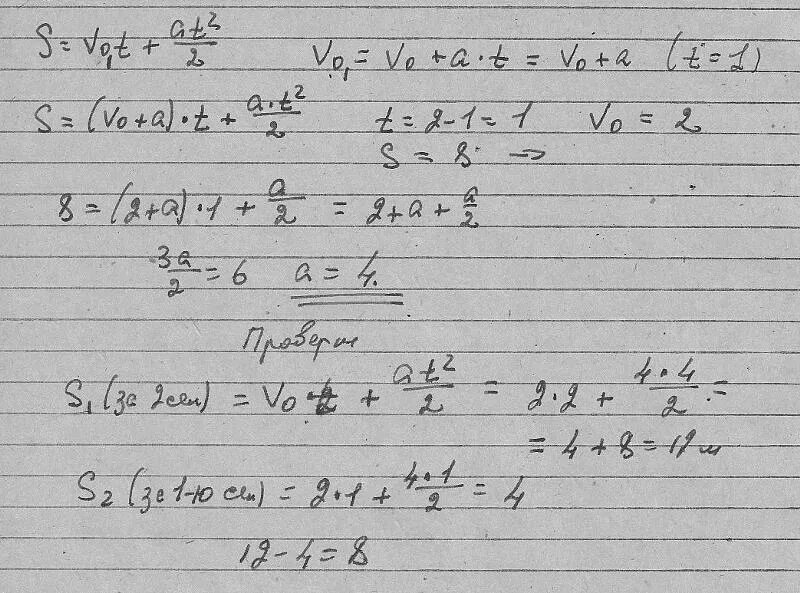 S = V₀₁t + at²/2    V₀₁ = V₀ + a·t = V₀ + a (t = 1)
S = (V₀ + a)·t + a·t²/2    t = 2-1 = 1    V₀ = 2
S = 8 →
8 = (2+a)·1 + a/2 = 2 + a + a/2
3a/2 = 6    a = 4.
Проверим
S₁ (за 2 сек) = V₀·t + at²/2 = 2·2 + 4·4/2 =
= 4 + 8 = 12 м
S₂ (за 1-ю сек) = 2·1 + 4·1/2 = 4
12 - 4 = 8